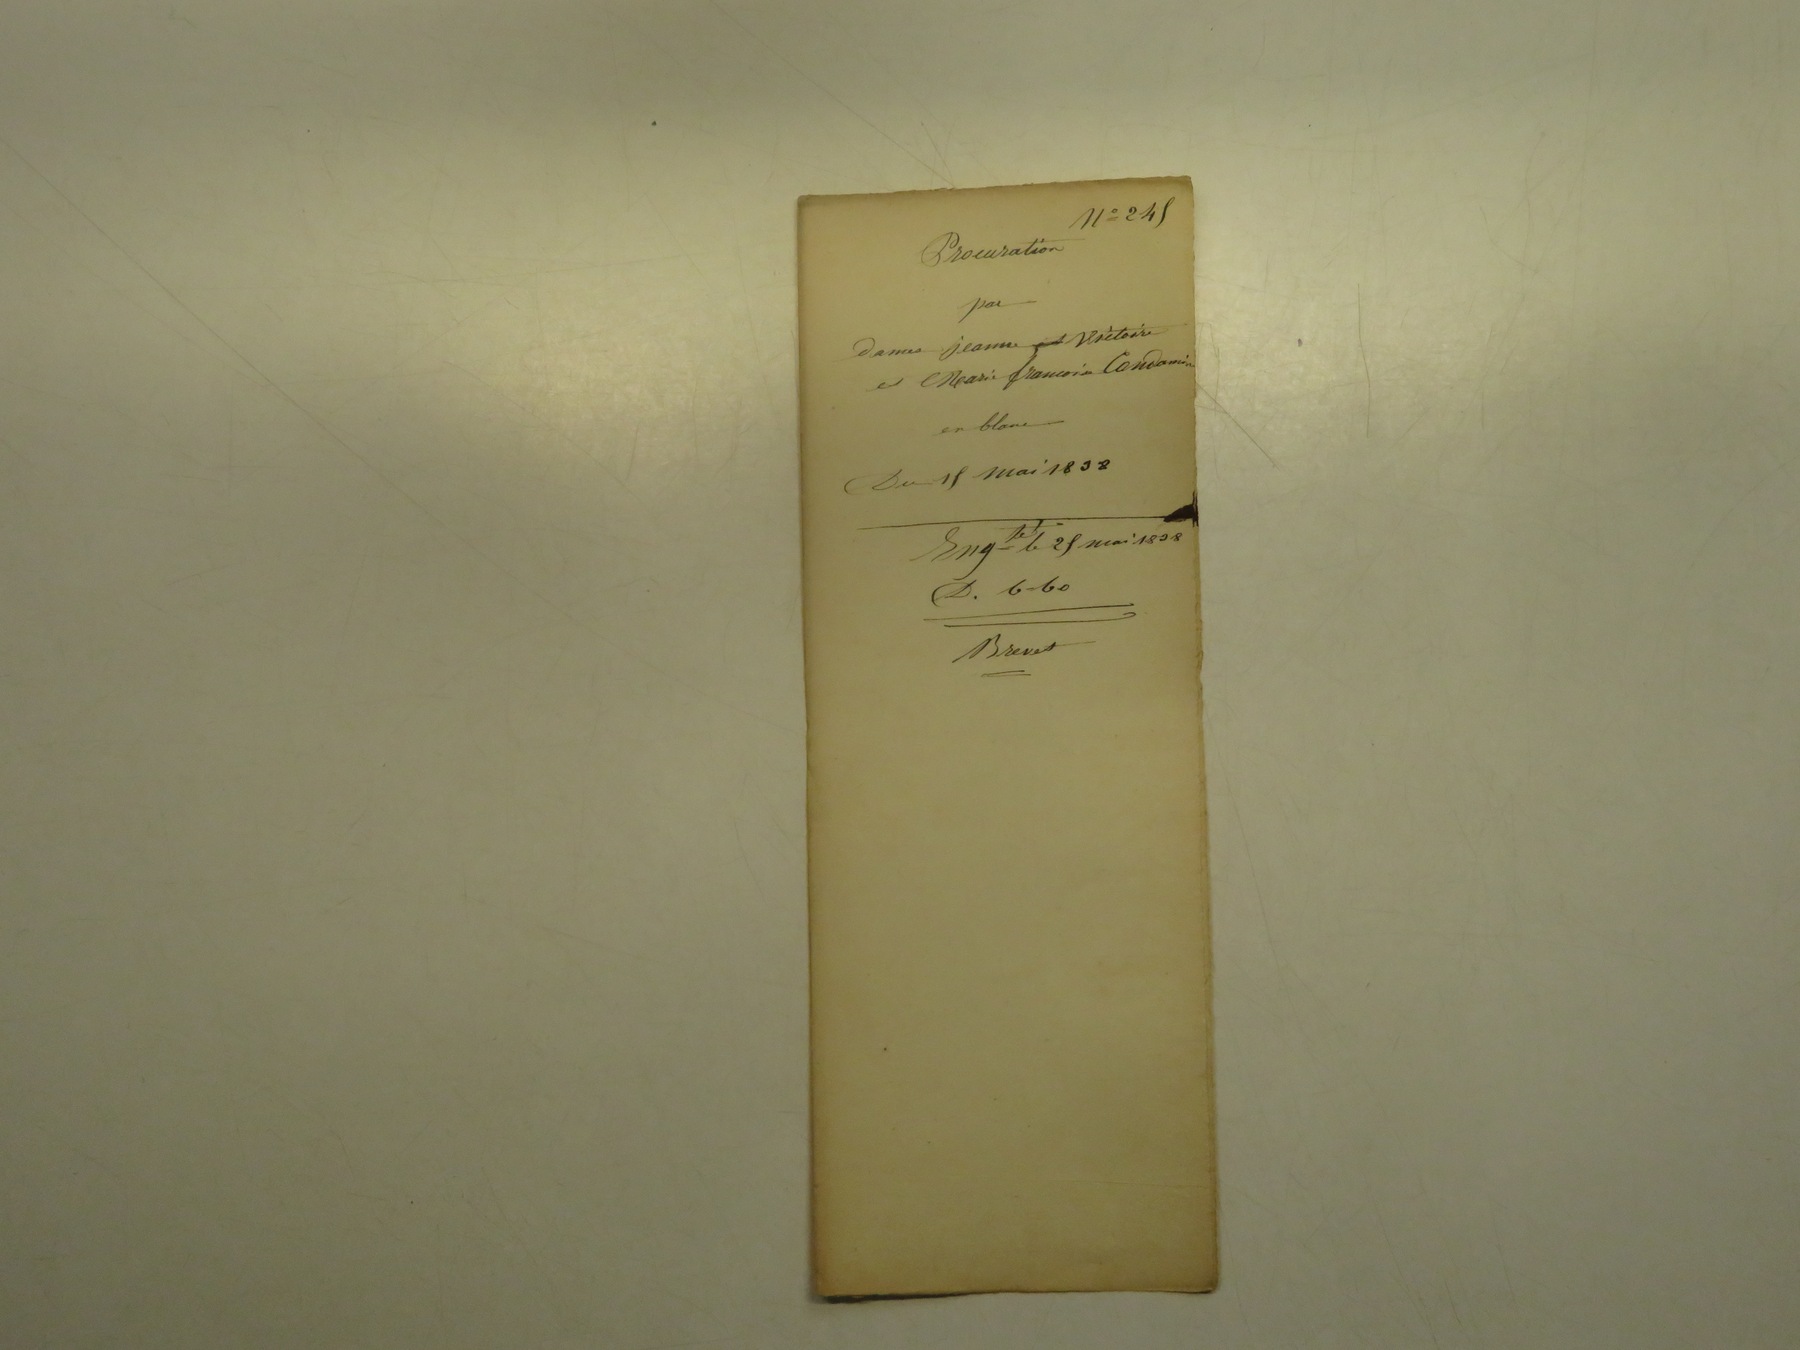 N° 245
Procuration
par
dames jeanne et Victoire
et Marie françoise Condamin
en blanc
Du 15 mai 1838
Engté le 25 mai 1838
D. 6-60
Brevet